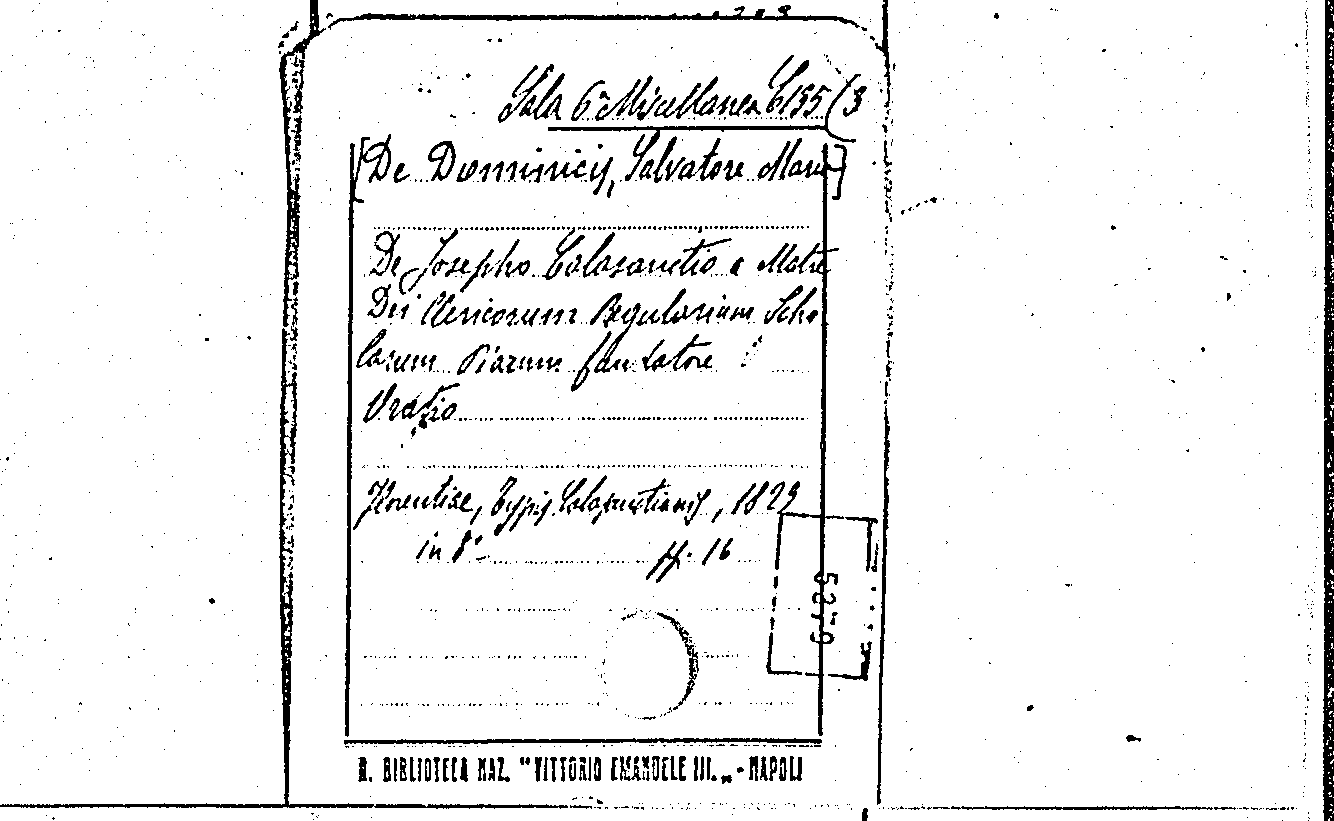 Sala 6ª Miscellanea C155 (3
[De Dominicis, Salvatore Maria]
De Josepho Calasanctio a Matre
Dei Clericorum Regularium Scho
larum Piarum fundatore
Oratio
Florentiae, Typis Calasanctianis, 1829
in 8º pp. 16
5279
R. BIBLIOTECA NAZ. "VITTORIO EMANUELE III.„ - NAPOLI